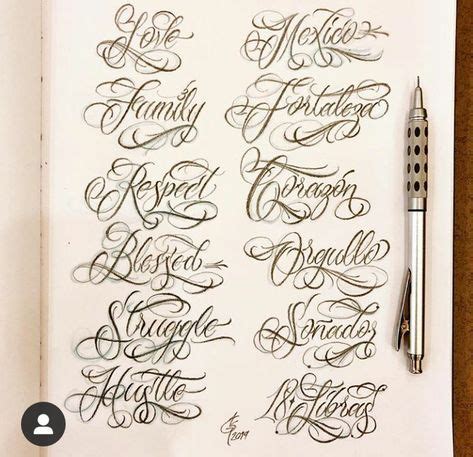 Love
Mexico
Family
Fortaleza
Respect
Corazón
Blessed
Orgullo
Struggle
Soñador
Hustle
18 Libras
2019